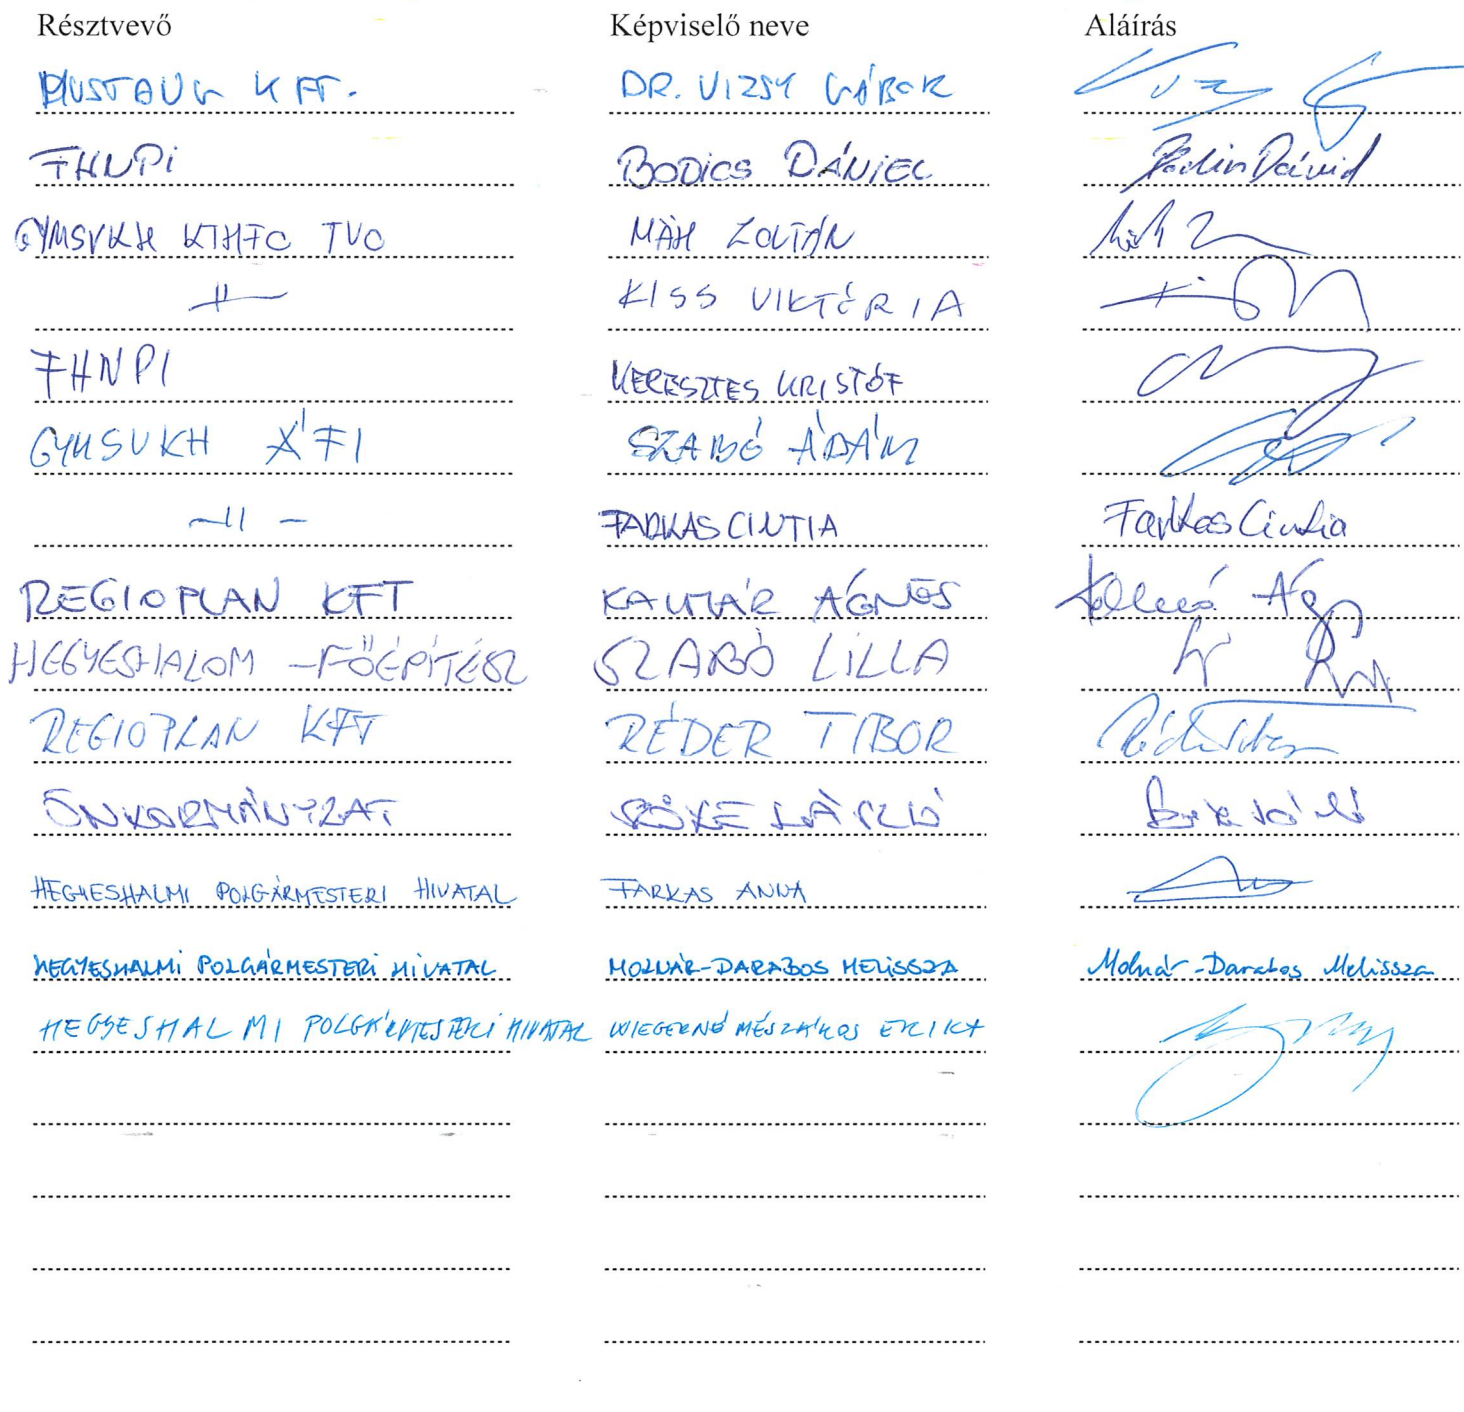 Résztvevő Képviselő neve Aláírás
MUSTANG KFT. DR. VIZSY GÁBOR
FHNPI BODICS DÁNIEL
GYMSVKH KTHFO TVO MÁH ZOLTÁN
-11- KISS VIKTÓRIA
FHNPI KERESZTES KRISTÓF
GYMSVKH ÁFI SZABÓ ÁDÁM
-11- FARKAS CINTIA Farkas Cintia
REGIOPLAN KFT KALMÁR ÁGNES
HEGYESHALOM - FŐÉPÍTÉSZ SZABÓ LILLA
REGIOPLAN KFT RÉDER TIBOR Réder Tibor
ÖNKORMÁNYZAT SZŐKE LÁSZLÓ
HEGYESHALMI POLGÁRMESTERI HIVATAL FARKAS ANNA
HEGYESHALMI POLGÁRMESTERI HIVATAL MOLNÁR-DARABOS MELISSZA Molnár-Darabos Melissza
HEGYESHALMI POLGÁRMESTERI HIVATAL WIEGERNÉ MÉSZÁROS ERIKA